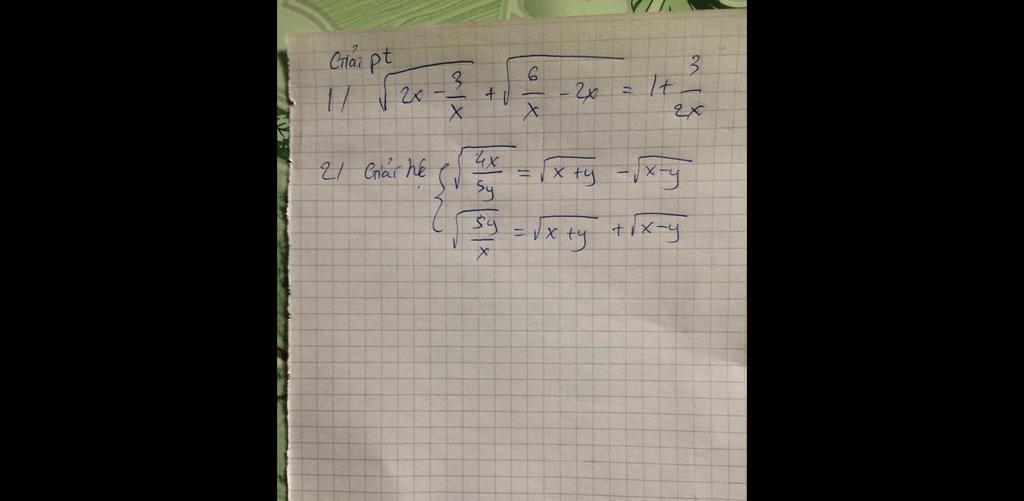 Giải pt
1/ √(2x - 3/x) + √(6/x - 2x) = 1 + 3/2x
2/ Giải hệ { √(4x/5y) = √(x+y) - √(x-y)
√(5y/x) = √(x+y) + √(x-y)